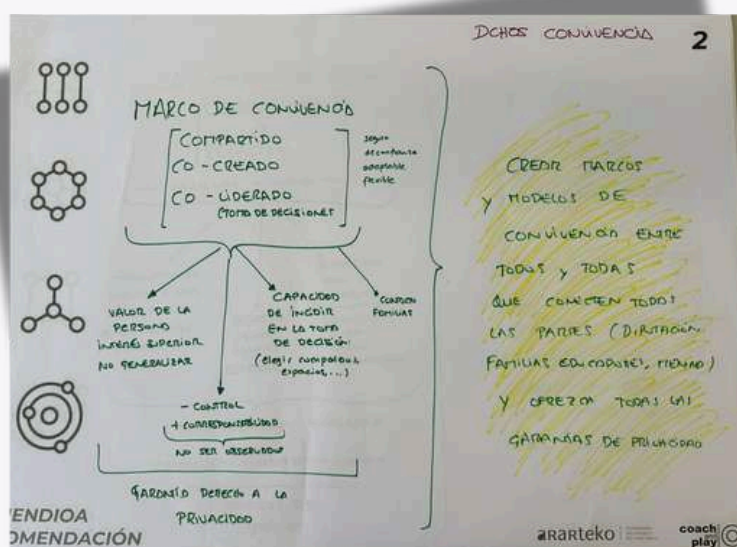 DCHOS CONVIVENCIA
2
MARCO DE CONVIVENCIA
COMPARTIDO
CO-CREADO
CO-LIDERADO
(TOMA DE DECISIONES
seguro
de confianza
adaptable
flexible
VALOR DE LA
PERSONA
INTERÉS SUPERIOR
NO GENERALIZAR
CAPACIDAD
DE INCIDIR
EN LA TOMA
DE DECISIÓN
(elegir compañeros,
espacios,...)
FAMILIAS
- CONTROL
+ CORRESPONSABILIDAD
NO SER OBSERVADOS
GARANTÍA DERECHO A LA
PRIVACIDAD
CREAR MARCOS
Y MODELOS DE
CONVIVENCIA ENTRE
TODOS Y TODAS
QUE CONECTEN TODAS
LAS PARTES (DIPUTACIÓN,
FAMILIAS EDUCADORES,
Y OFREZCA TODAS LAS
GARANTÍAS DE PRIVACIDAD
ENDIOA
OMENDACIÓN
ararteko
coach
play